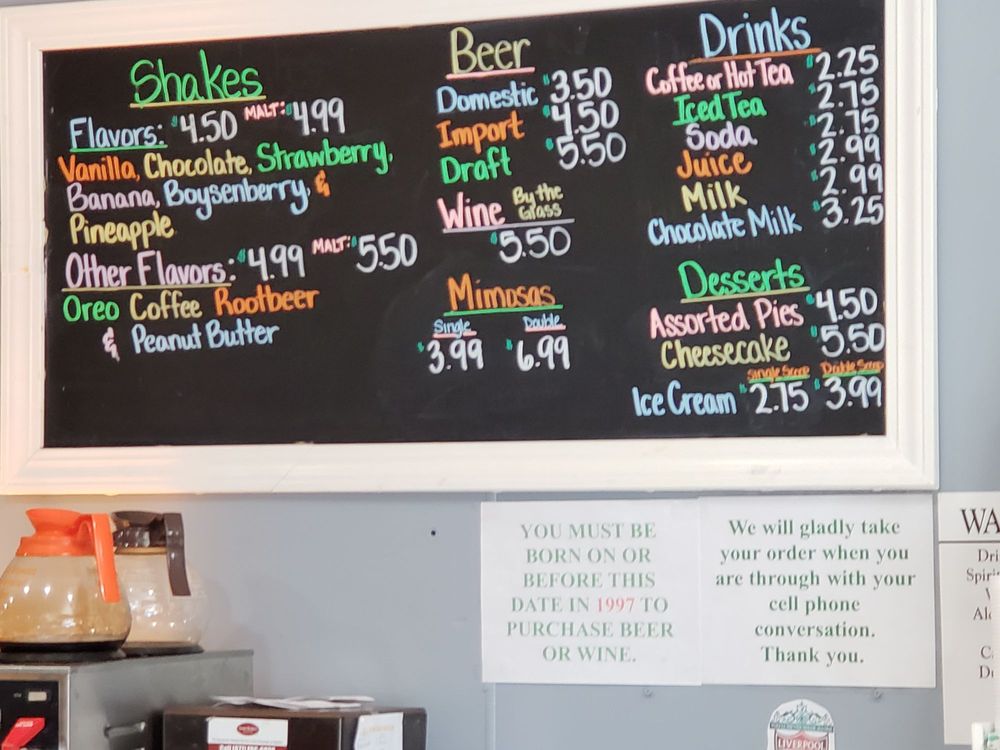 Shakes
Flavors: $4.50 MALT: $4.99
Vanilla, Chocolate, Strawberry,
Banana, Boysenberry, &
Pineapple
Other Flavors: $4.99 MALT: $5.50
Oreo Coffee Rootbeer
& Peanut Butter
Beer
Domestic $3.50
Import $4.50
Draft $5.50
Wine By the Glass
$5.50
Mimosas
Single Double
$3.99 $6.99
Drinks
Coffee or Hot Tea $2.25
Iced Tea $2.75
Soda $2.75
Juice $2.99
Milk $2.99
Chocolate Milk $3.25
Desserts
Assorted Pies $4.50
Cheesecake $5.50
Single Scoop Double Scoop
Ice Cream $2.75 $3.99
YOU MUST BE
BORN ON OR
BEFORE THIS
DATE IN 1997 TO
PURCHASE BEER
OR WINE.
We will gladly take
your order when you
are through with your
cell phone
conversation.
Thank you.
WA
Dri
Spiri
Alc
C
LIVERPOOL